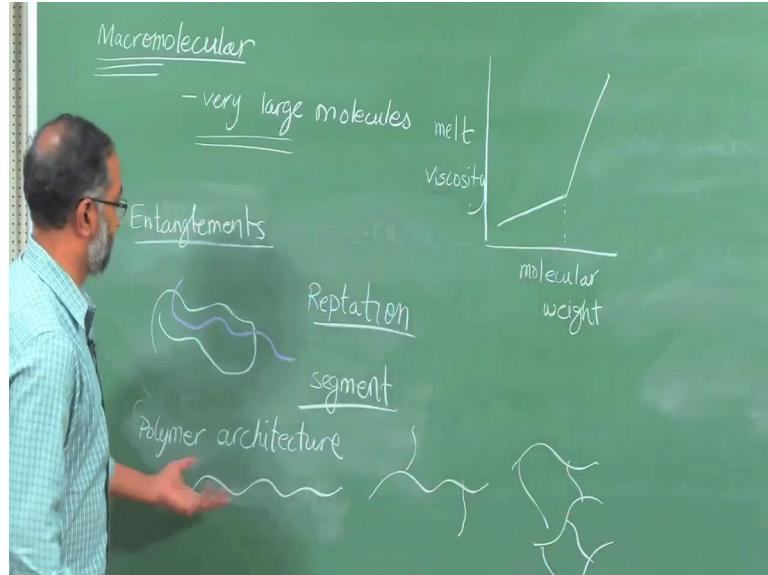 Macromolecular
- very large molecules
melt
viscosity
molecular
weight
Entanglements
Reptation
segment
Polymer architecture